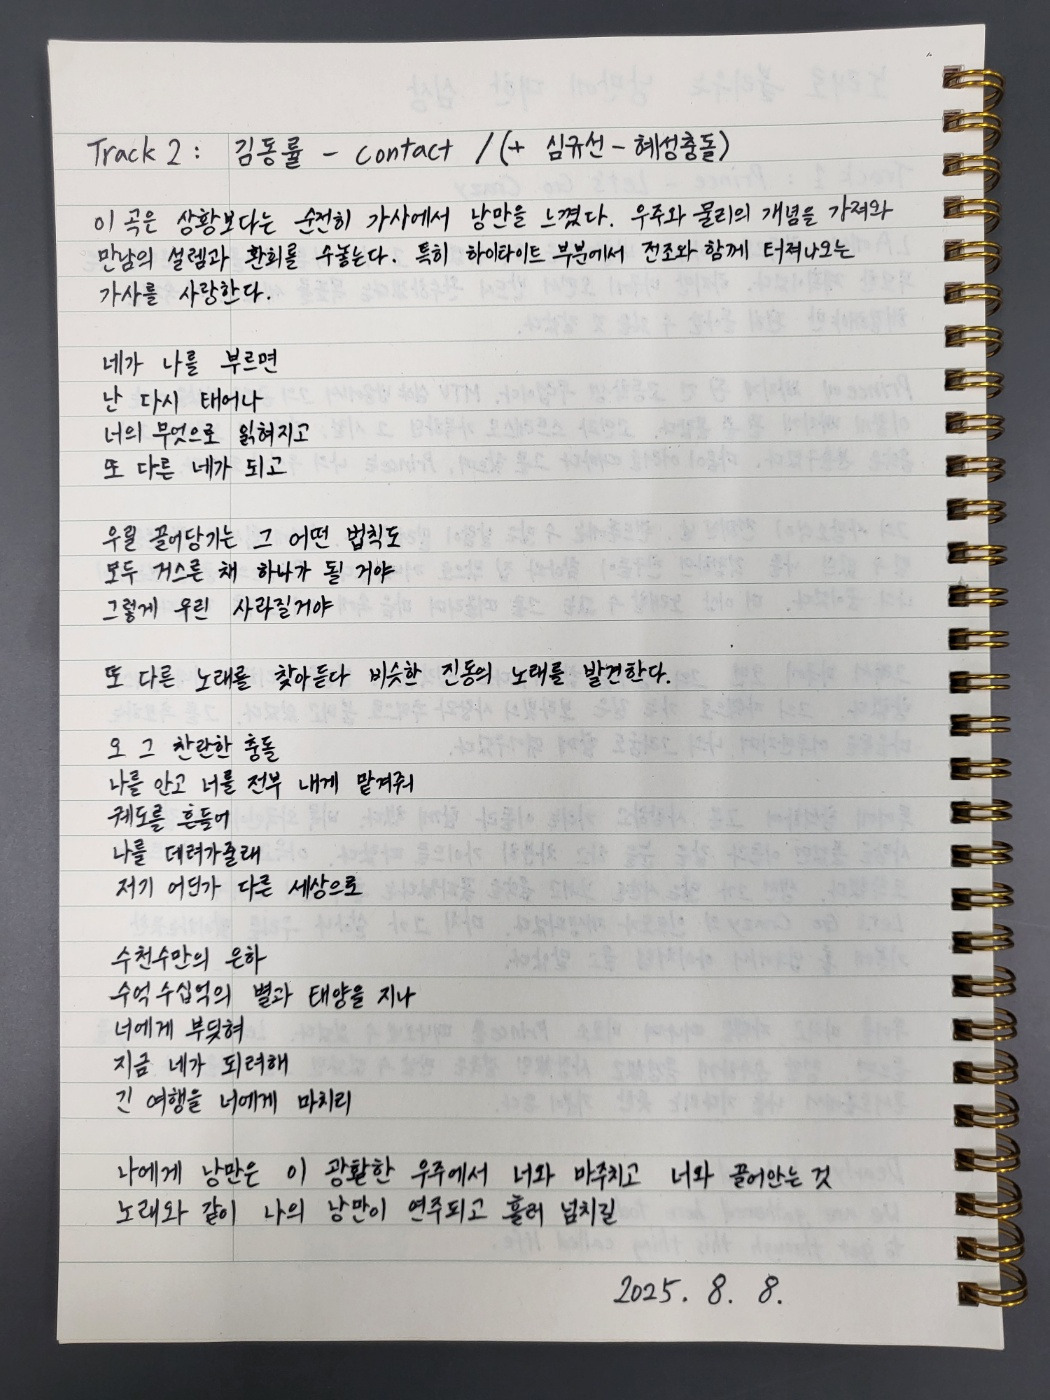 Track 2 : 김동률 - contact / (+ 심규선 - 혜성충돌)
이 곡은 상황보다는 순전히 가사에서 낭만을 느꼈다. 우주와 물리의 개념을 가져와
만남의 설렘과 환희를 수놓는다. 특히 하이라이트 부분에서 전조와 함께 터져나오는
가사를 사랑한다.
네가 나를 부르면
난 다시 태어나
너의 무엇으로 읽혀지고
또 다른 네가 되고
우릴 끌어당기는 그 어떤 법칙도
모두 거스른 채 하나가 될 거야
그렇게 우린 사라질거야
또 다른 노래를 찾아듣다 비슷한 진동의 노래를 발견한다.
오 그 찬란한 충돌
나를 안고 너를 전부 내게 맡겨줘
궤도를 흔들어
나를 데려가줄래
저기 어딘가 다른 세상으로
수천수만의 은하
수억수십억의 별과 태양을 지나
너에게 부딪혀
지금 네가 되려해
긴 여행을 너에게 마치리
나에게 낭만은 이 광활한 우주에서 너와 마주치고 너와 끌어안는 것
노래와 같이 나의 낭만이 연주되고 흘러 넘치길
2025. 8. 8.